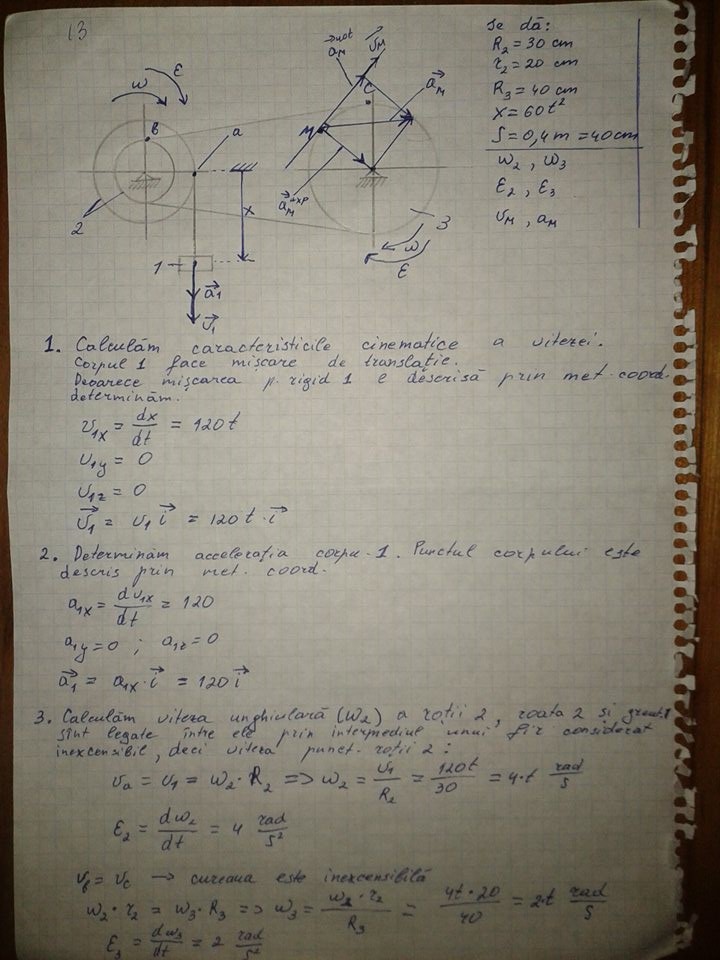 13
Se dă:
R₂ = 30 cm
r₂ = 20 cm
R₃ = 40 cm
x = 60t²
S = 0,4 m = 40 cm
ω₂ , ω₃
ε₂ , ε₃
v_M , a_M
ω
ε
B
a
2
x
1
a⃗₁
v⃗₁
v⃗_M
C
a⃗_M
M
3
ω
ε
1. Calculăm caracteristicile cinematice a vitezei.
Corpul 1 face mișcare de translație.
Deoarece mișcarea p. rigid 1 e descrisă prin met. coord.
determinăm.
v₁ₓ = dx/dt = 120t
v₁y = 0
v₁z = 0
v⃗₁ = v₁ i⃗ = 120t · i⃗
2. Determinăm accelerația corpu. 1. Punctul corpului este
descris prin met. coord.
a₁ₓ = dv₁ₓ/dt = 120
a₁y = 0 ; a₁z = 0
a⃗₁ = a₁ₓ · i⃗ = 120 i⃗
3. Calculăm viteza unghiulară (ω₂) a roții 2, roata 2 și greut. 1
sînt legate între ele prin intermediul unui fir considerat
inexcensibil, deci viteza punct. roții 2 :
v_a = v₁ = ω₂ · R₂ => ω₂ = v₁/R₂ = 120t/30 = 4·t rad/s
ε₂ = dω₂/dt = 4 rad/s²
v_B = v_C → cureaua este inexcensibilă
ω₂ · r₂ = ω₃ · R₃ => ω₃ = ω₂ · r₂/R₃ = 4t · 20/40 = 2·t rad/s
ε₃ = dω₃/dt = 2 rad/s²